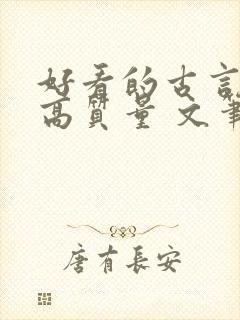 好看的古言
高质量 文笔
唐有長安